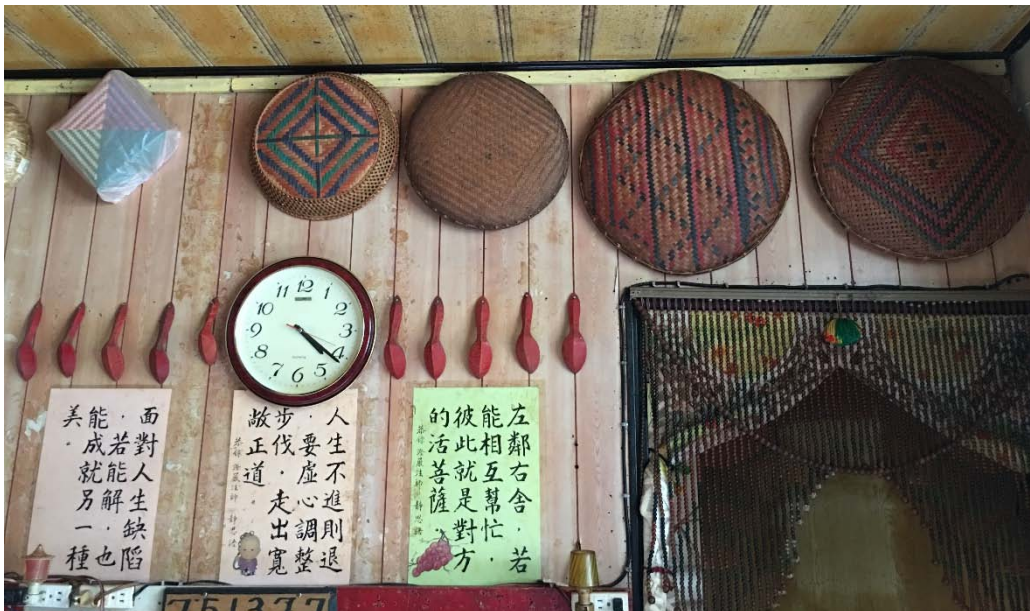 12
1
2
3
4
5
6
7
8
9
10
11
面對人生缺陷
，若能解，也
能成就另一種
美。
人生不進則退
，要虛心調整
步伐，走出寬
敞正道
恭錄 證嚴法師 靜思語
左鄰右舍，若
能相互幫忙，
彼此就是對方
的活菩薩
恭錄 證嚴法師 靜思語
751377